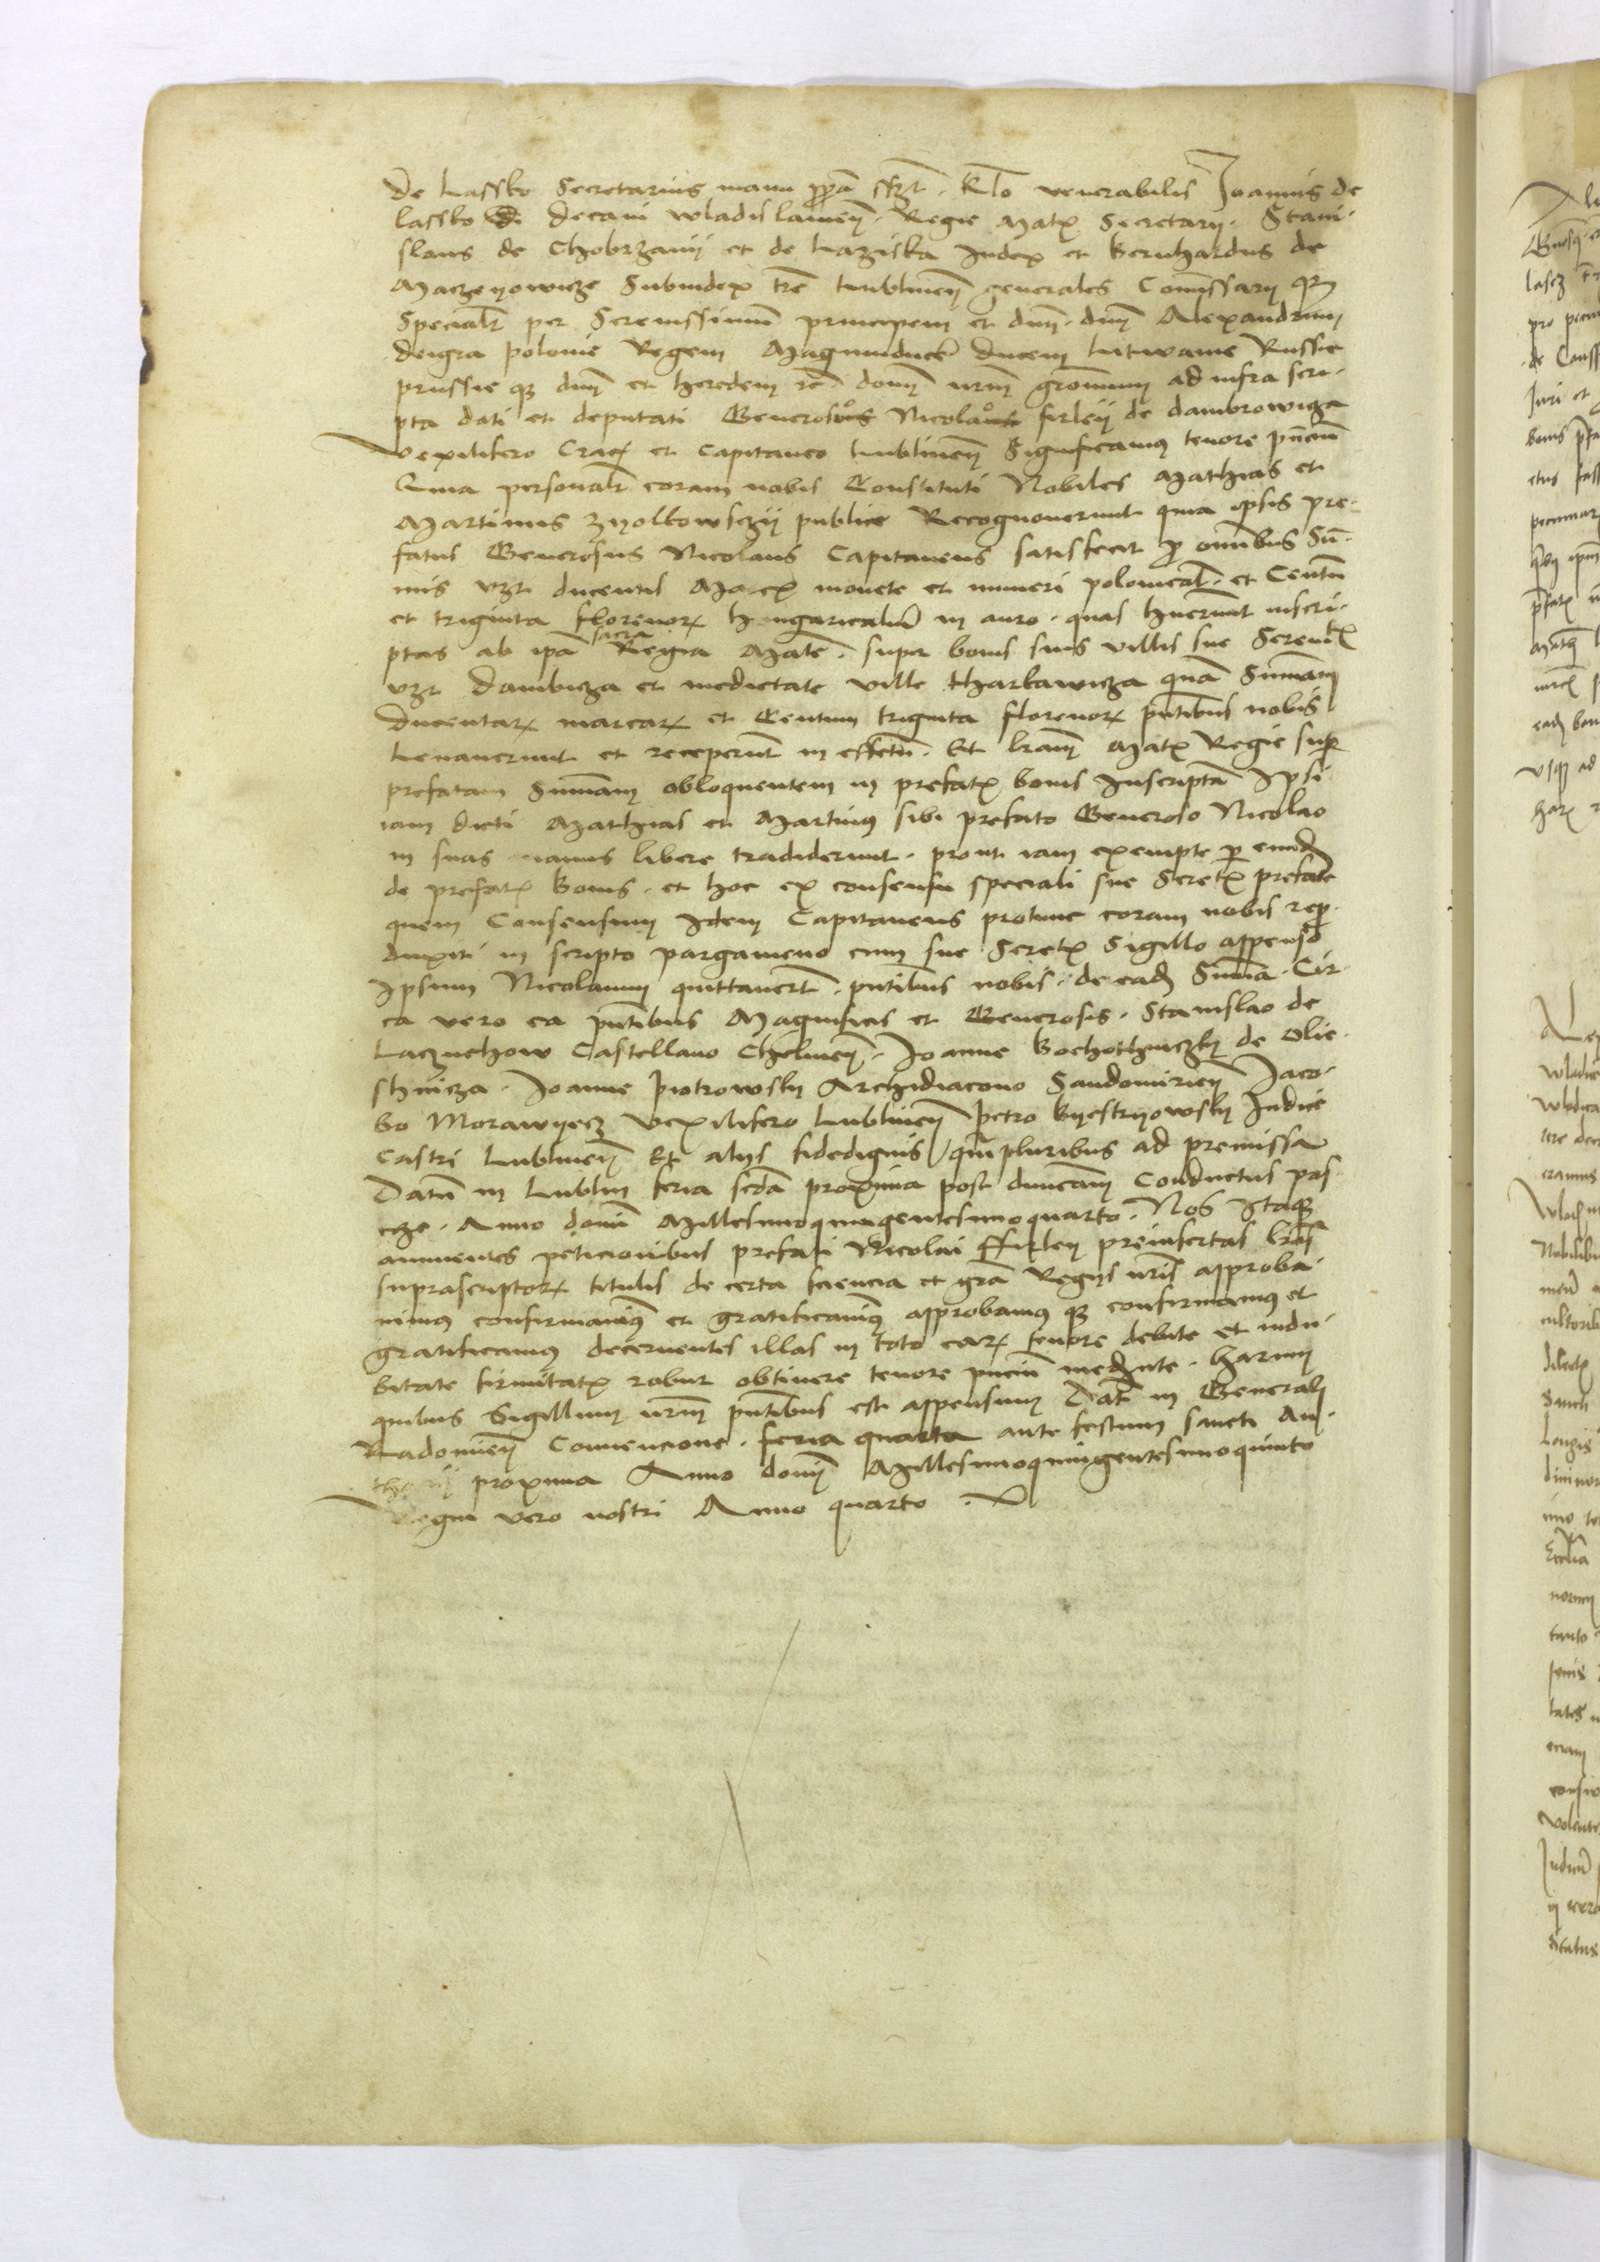 de Lassko Secretarius manu pp̃a sszt. Rlo venerabilis Joannis de
lassko decani wladislauieñ. Regie Matꝭ Secretarij. Stani-
slaus de Chobrzanij et de Laziska Judex et Bernhardus de
Maczeyowicze Subiudex trẽ Lublineñ generales Comissarij
Specialr̃ per Serenissimum principem et dnũ. dnũ Alexandrum
deigra polonie Regem Magnumducẽ ducem Lituanie Russie
prussie qꝫ dnũ et heredem ꝛc̃. dominũ nrm̃ gr̃osum ad infra scri-
pta dati et deputati Generoso Nicolao firleij de dambrowicza
Vexilifero Cracꝭ et Capitaneo Lublineñ Significamꝯ tenore pñciũ
Quia personalr̃ coram nobis Constituti Nobiles Mathias et
Martinus zyolkowsczij publice Recognouerunt quia ipsis pre-
fatus Generosus Nicolaus Capitaneus satisfecit ꝓ omnibus Sũ-
mis vꝫt ducentis Marcꝭ monete et numeri polonicalꝭ. et Centũ
et triginta florenorꝝ hungaricaliũ in auro. quas hꝫuerũnt inscri-
ptas ab ipã sacra Regia Mate. super bonis suis villis sue Serenitꝭ
vꝫt dambicza et medietate ville tharlawicza quã Sum̃am
ducentarꝝ marcarꝝ et Centum triginta florenorꝝ pñtibus nobis
Leuauerunt et receperũt in effectũ. Et lr̃am Matꝭ Regie supꝫ
prefatam Sum̃am obloquentem in prefatꝭ bonis Inscriptã Ipsi
iam dicti Mathias et Martinꝯ sibi prefato Generoso Nicolao
in suas manus libere tradiderunt. prout iam exempte ꝑ eundẽ
de prefatꝭ bonis. et hoc ex consensu speciali sue Seretꝭ prefate
quem Consensum Idem Capitaneus protunc coram nobis repꝛo-
duxit in scripto pargameno cum sue Seretꝭ Sigillo appenso
Ipsum Nicolaum quittauert̃. pñtibus nobis. de eadẽ Sum̃a. Cir-
ca vero ea pñtibus Magnificis et Generosis. Stanislao de
Lacznchow Castellano Chelmeñ. Joanne Bochothniczkij de Ole-
schnicza. Joanne piotrowskij Archidiacono Sandomirieñ Jaco-
bo Morawyecz Vexilifero Lublineñ petro Byestrzyowskij Judice
Castri Lublineñ Et alijs fidedignis q̃mpluribus ad premissa
Datũ in Lublin feria scd̃a proxima post dnicam̃ Conductus pas-
che. Anno domĩ Millesimoquingentesimoquarto. Nos Itaqꝫ
annuentes peticionibus prefati Nicolai ffirleij preinsertas lr̃as
suprascriptorꝝ titulis de certa sciencia et grã Regijs nr̃is approba-
uimus confirmauimꝯ et gratificauimꝯ approbamus qꝫ confirmamꝯ et
gratificamꝯ decernentes illas in toto earꝝ tenore debite et indu-
bitate firmitatꝭ robur obtinere tenore pñciũ mediãte. harum
quibus Sigillum nrm̃ pñtibus est appensum Datꝭ in Generali
Radomieñ Convencione. feria quarta ante festum sancti An-
thonij proxima Anno domĩ Millesimoquingentesimoquinto
Regni vero nostri Anno quarto.